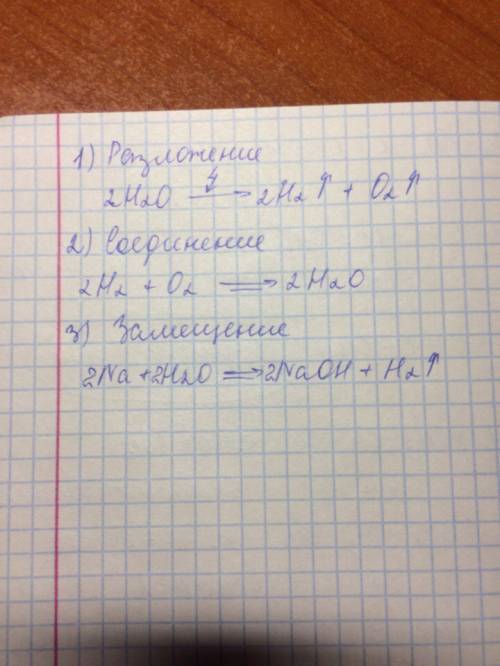 1) Разложение
2H₂O ⟶ 2H₂↑ + O₂↑
2) Соединение
2H₂ + O₂ ⟹ 2H₂O
3) Замещение
2Na + 2H₂O ⟹ 2NaOH + H₂↑